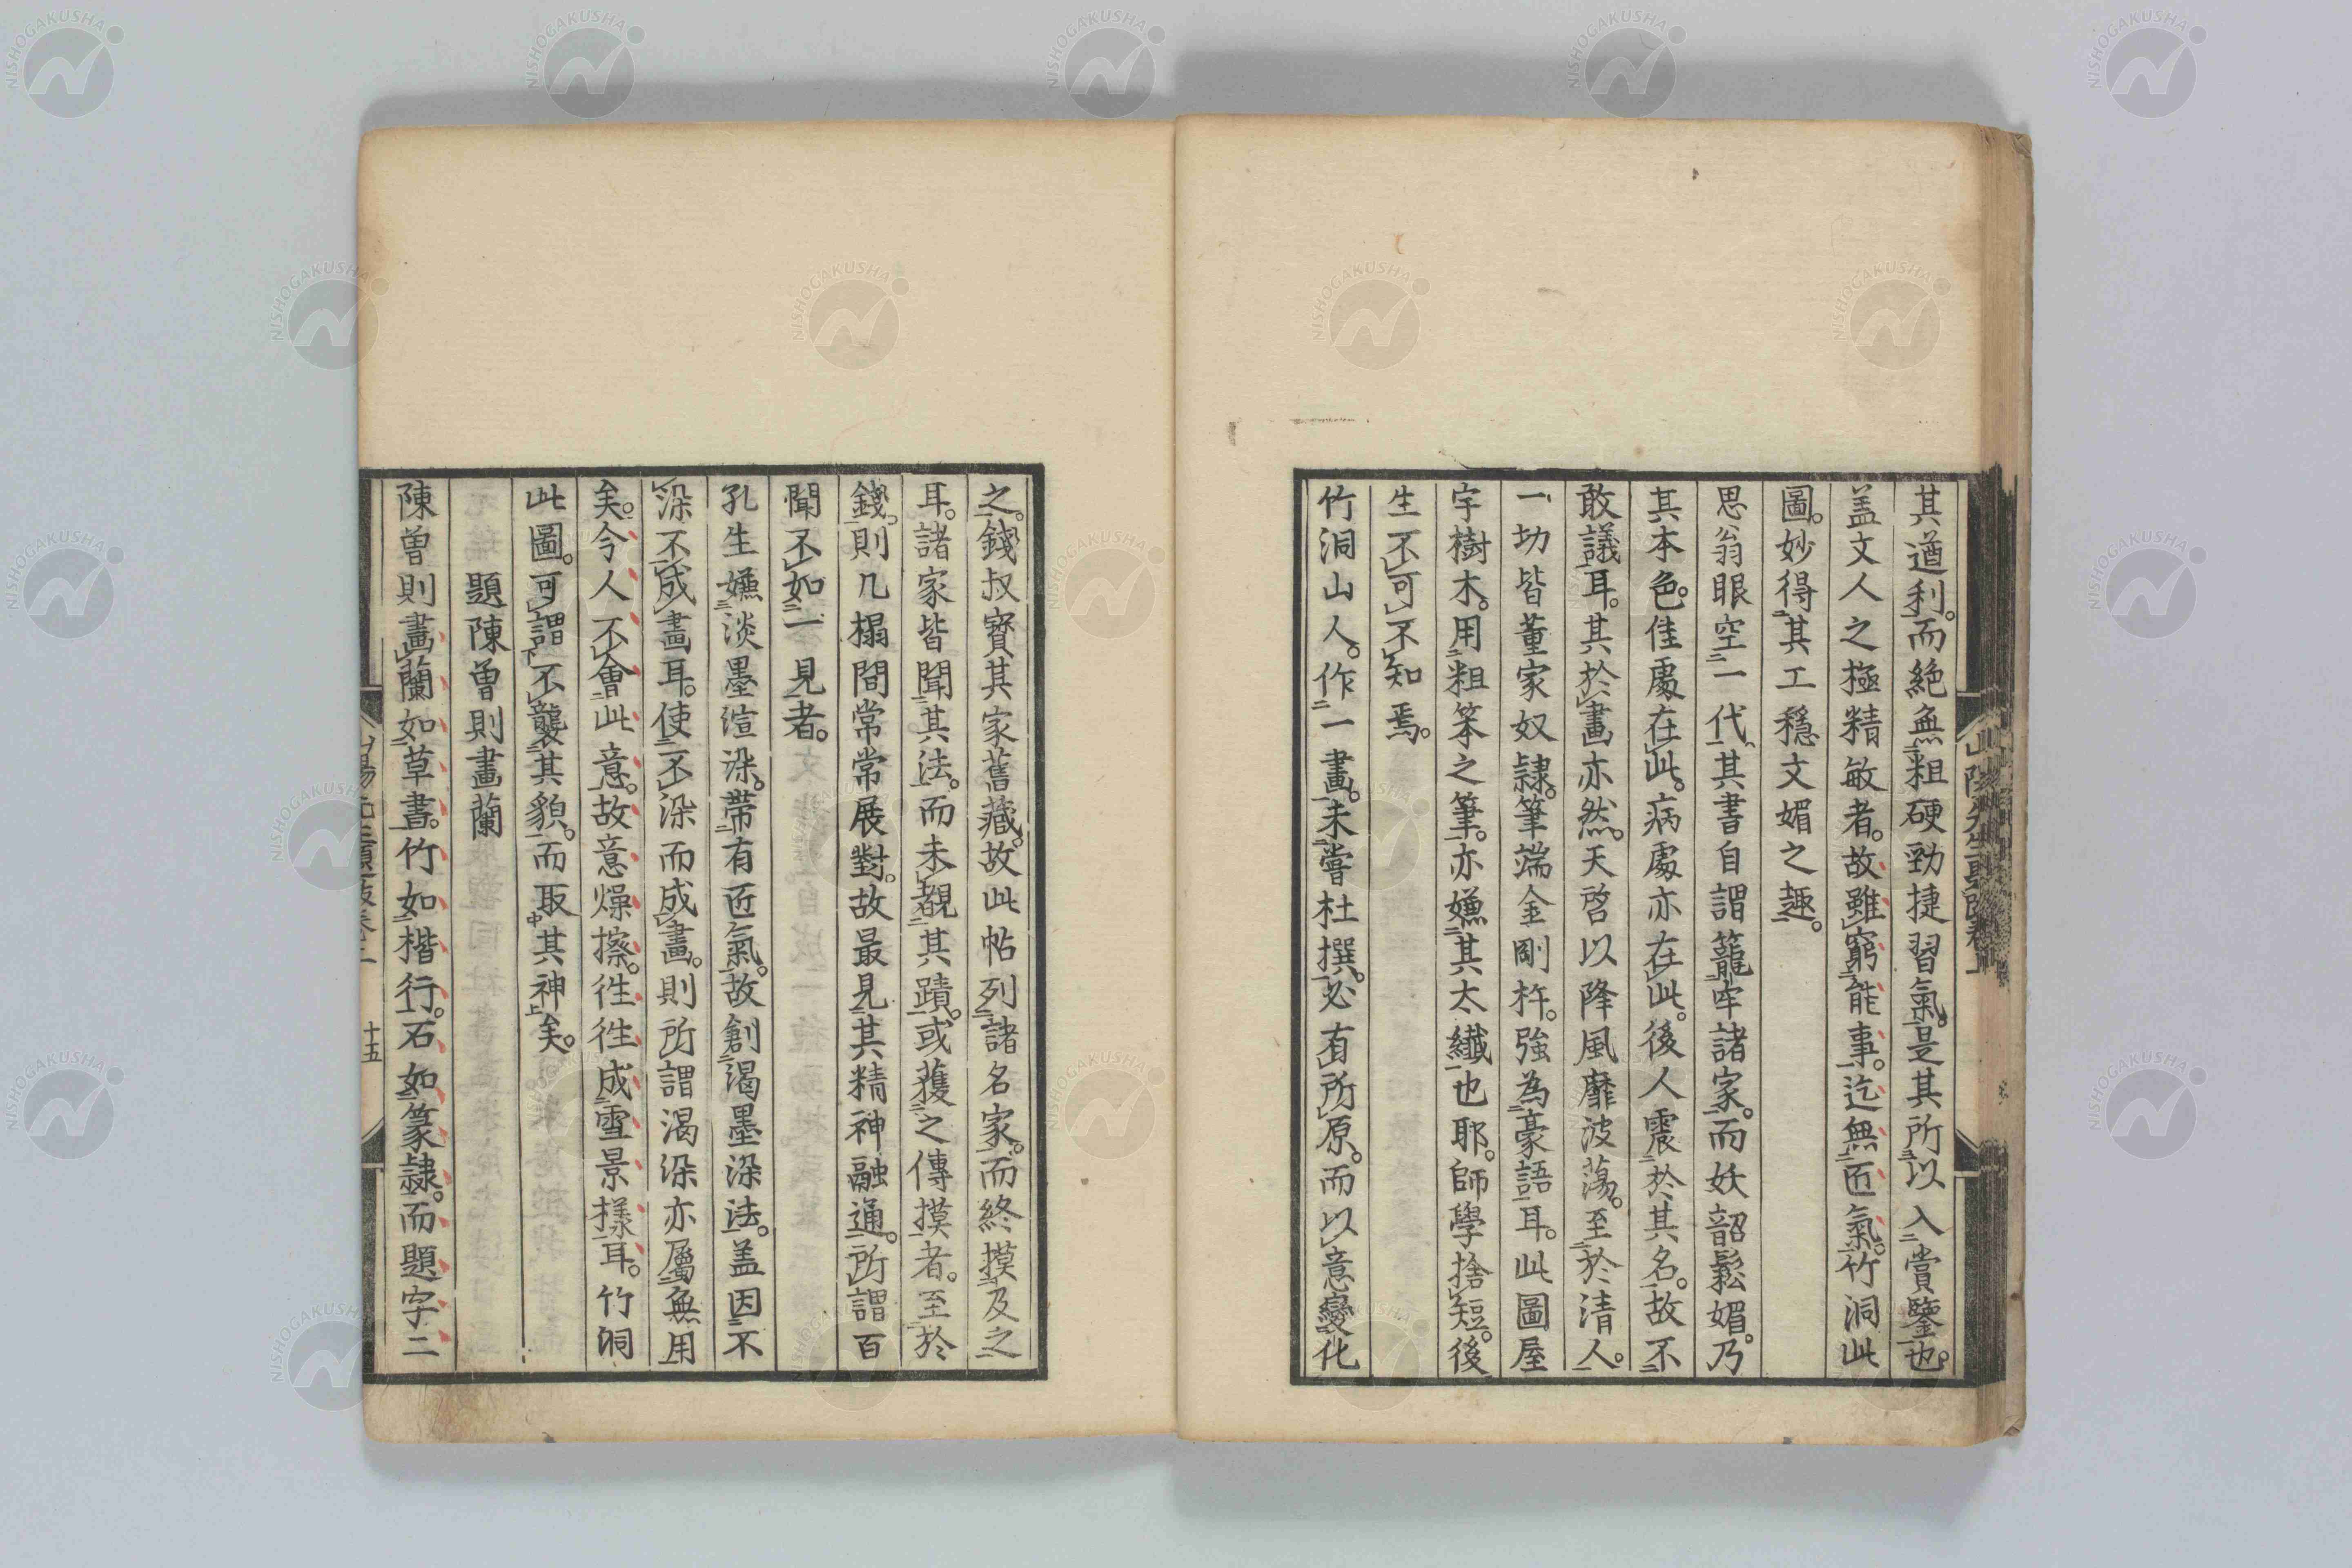 其遒利。而絶無粗硬勁捷習氣。是其所以入賞鑒也。
盖文人之極精敏者。故雖窮能事。迄無匠氣。竹洞此
圖。妙得其工穩文媚之趣。
思翁眼空一代。其書自謂籠牢諸家。而妖韶鬆媚。乃
其本色。佳處在此。病處亦在此。後人震於其名。故不
敢議耳。其於畫亦然。天啓以降風靡波蕩。至於清人。
一切皆董家奴隷。筆端金剛杵。強為豪語耳。此圖屋
宇樹木。用粗笨之筆。亦嫌其太纖也耶。師學捨短。後
生不可不知焉。
竹洞山人。作一畫。未嘗杜撰。必有所原。而以意變化
之。錢叔寳其家舊藏。故此帖列諸名家。而終摸及之
耳。諸家皆聞其法。而未覩其蹟。或獲之傳摸者。至於
錢。則几榻間常常展對。故最見其精神融通。所謂百
聞不如一見者。
孔生嫌淡墨渲染。帶有匠氣。故創渴墨染法。盖因不
染不成畫耳。使不染而成畫。則所謂渴染亦屬無用
矣。今人不會此意。故意燥擦。徃徃成雪景様耳。竹洞
此圖。可謂不襲其貌。而取其神矣。
題陳曽則畫蘭
陳曽則畫蘭如草書。竹如楷行。石如篆隷。而題字二
十五
NISHOGAKUSHA